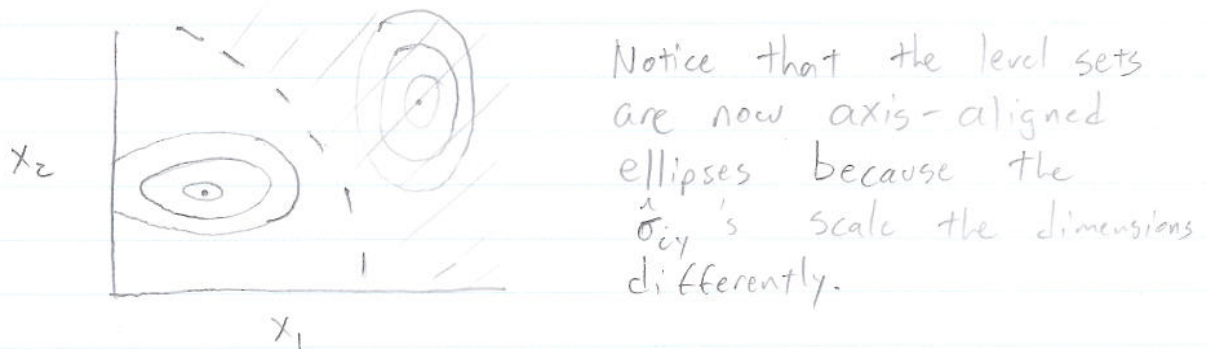 Notice that the level sets
are now axis-aligned
ellipses because the
σ̂iy's scale the dimensions
differently.
x2
x1